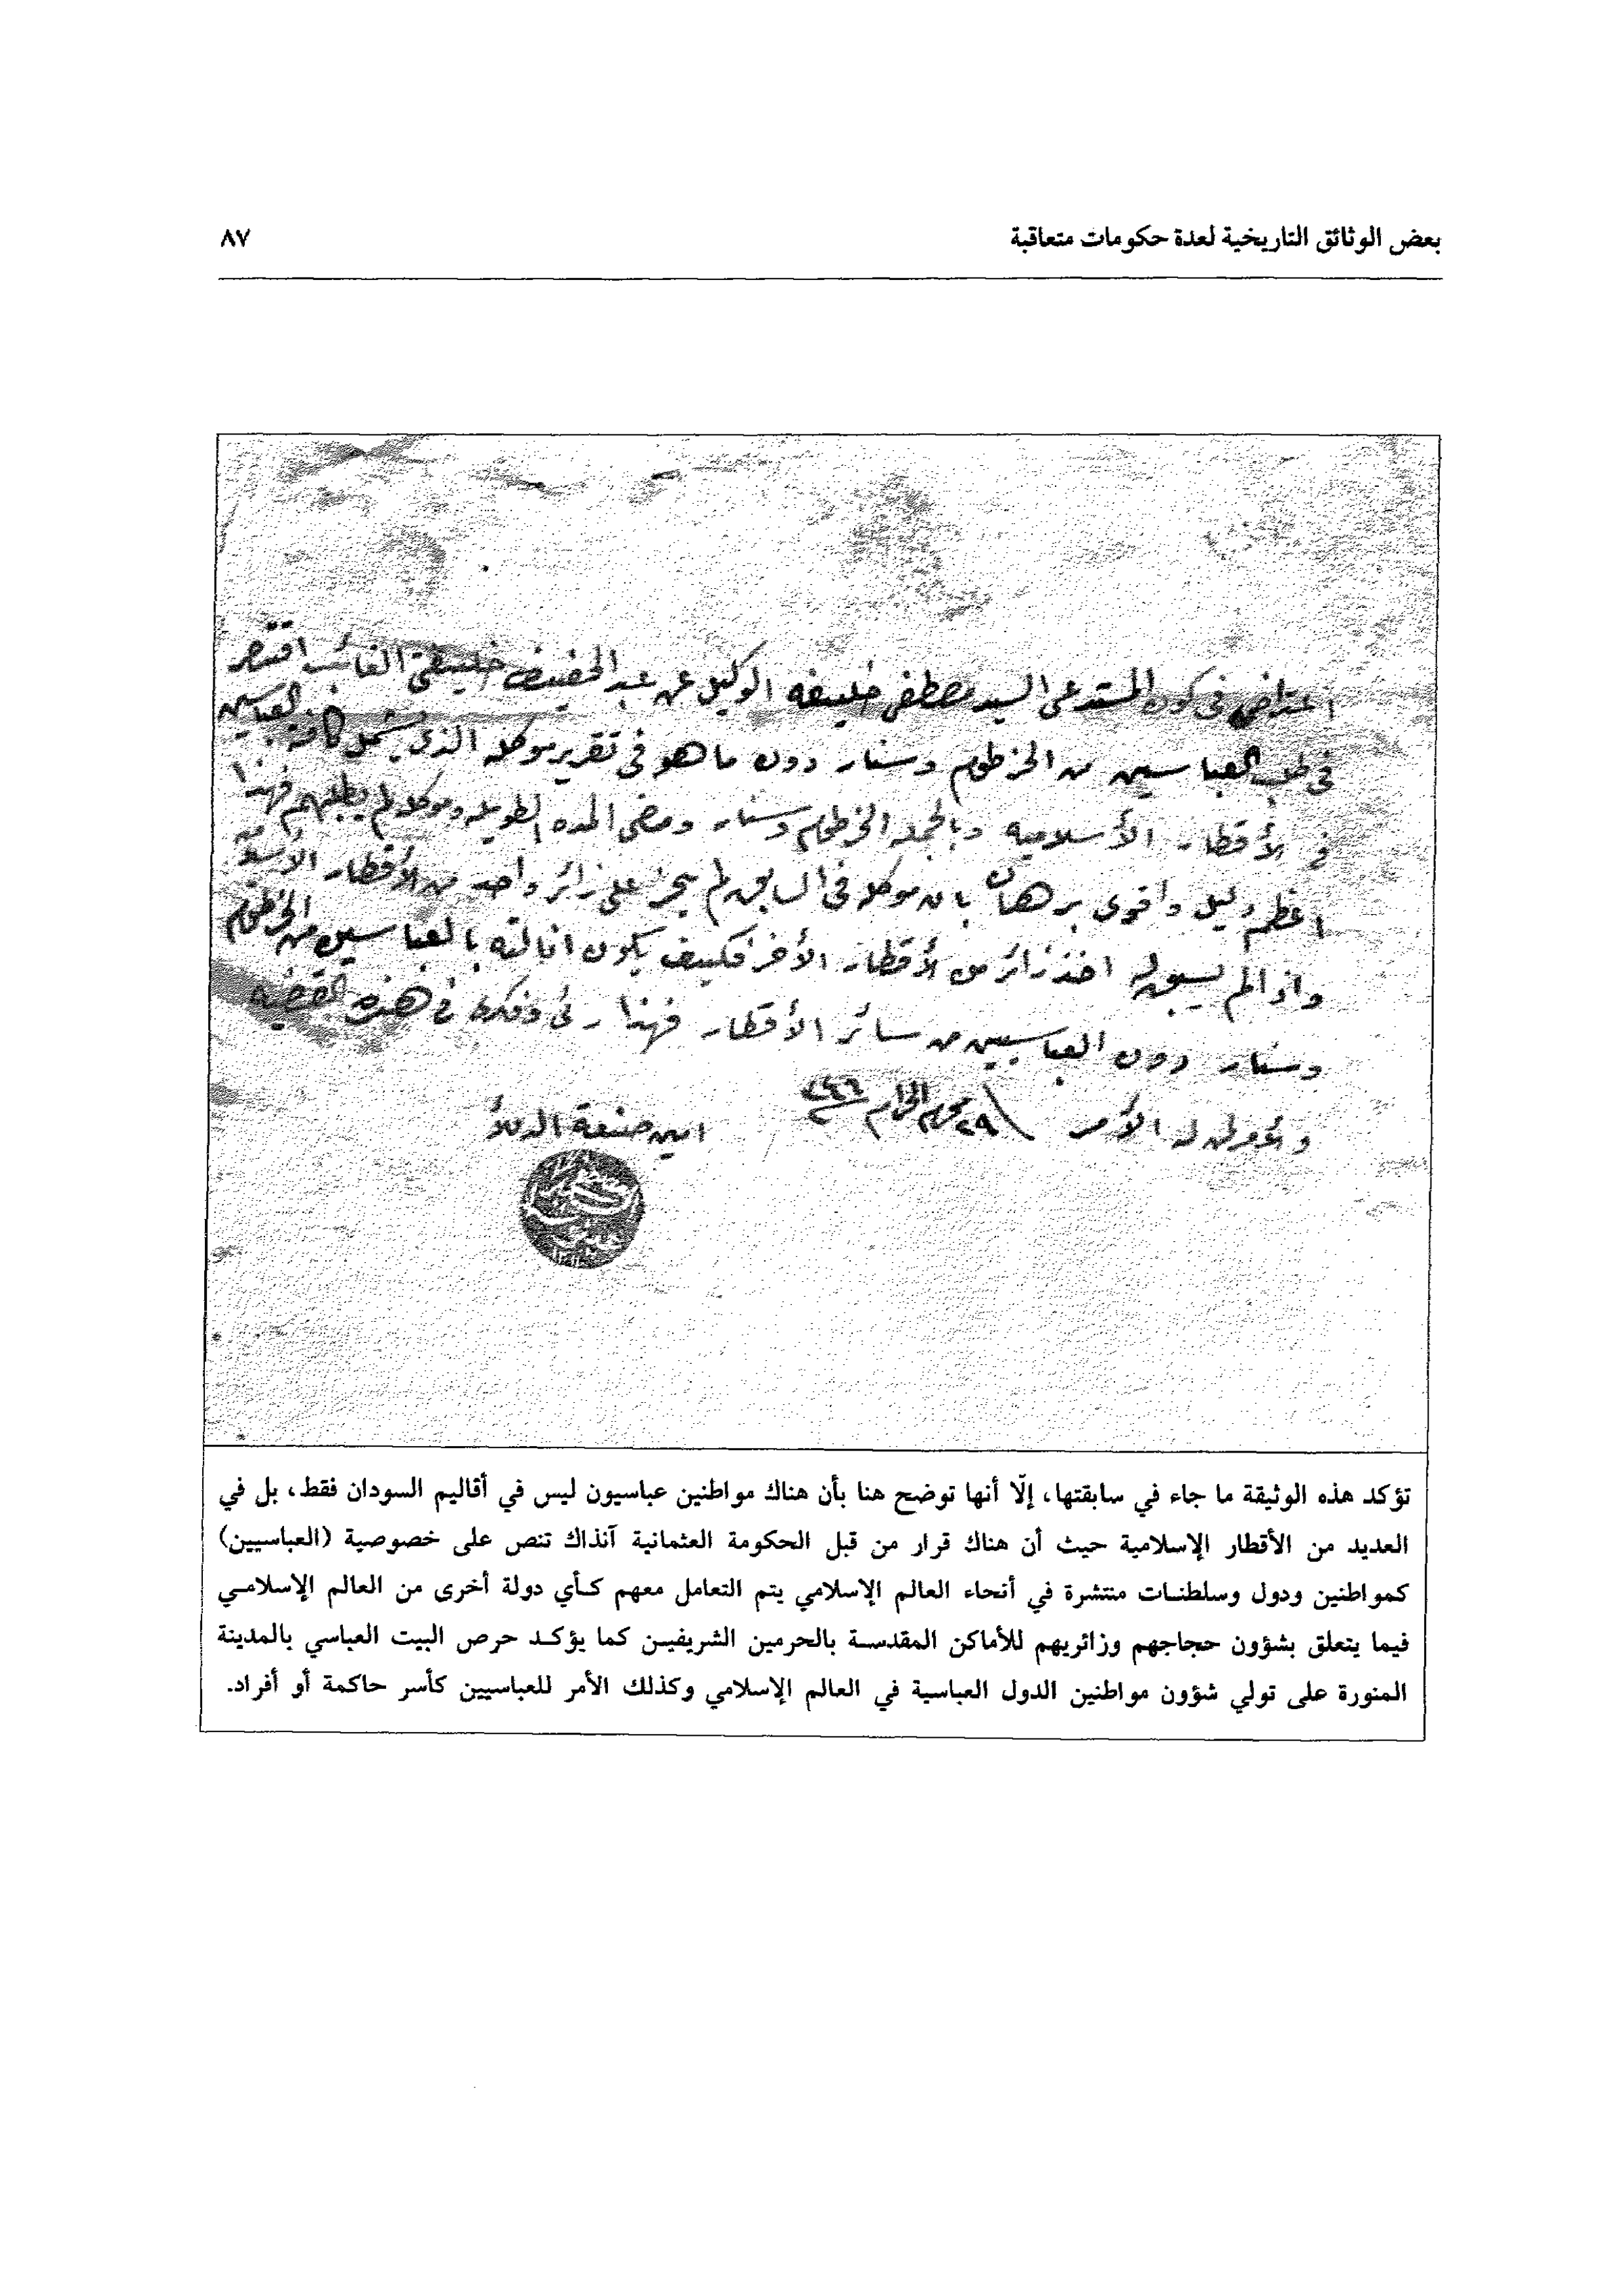 بعض الوثائق التاريخية لعدة حكومات متعاقبة
٨٧
اعتراضي في كون المستدعي السيد مصطفى خليفه الوكيل عن عبد الحفيض خليفتي الغائب اقتصر
في طلب العباسيين من الخرطوم وسنار دون ما هو في تقرير موكله الذي يشمل كافة العباسيين
في الأقطار الأسلامية وبالجمله الخرطوم وسنار ومضى المده الطويله وموكله لم يطلبهم فهذا
اعظم دليل وأقوى برهان بان موكله في السابق لم يحز على زائر واحد من الأقطار
واذا لم يسبق له اخذ زائر من الأقطار الأخر فكيف يكون انا لته بالعباسيين من الخرطوم
وسنار دون العباسيين من سائر الأقطار فهذا رئي وفكرى في هذه القضية
و لمن له الأمر ٢٩ محرم الحرام
امين صنعة الدلأ
تؤكد هذه الوثيقة ما جاء في سابقتها، إلّا أنها توضح هنا بأن هناك مواطنين عباسيون ليس في أقاليم السودان فقط، بل في
العديد من الأقطار الإسلامية حيث أن هناك قرار من قبل الحكومة العثمانية آنذاك تنص على خصوصية (العباسيين)
كمواطنين ودول وسلطنات منتشرة في أنحاء العالم الإسلامي يتم التعامل معهم كأي دولة أخرى من العالم الإسلامي
فيما يتعلق بشؤون حجاجهم وزائريهم للأماكن المقدسة بالحرمين الشريفين كما يؤكد حرص البيت العباسي بالمدينة
المنورة على تولي شؤون مواطنين الدول العباسية في العالم الإسلامي وكذلك الأمر للعباسيين كأسر حاكمة أو أفراد.